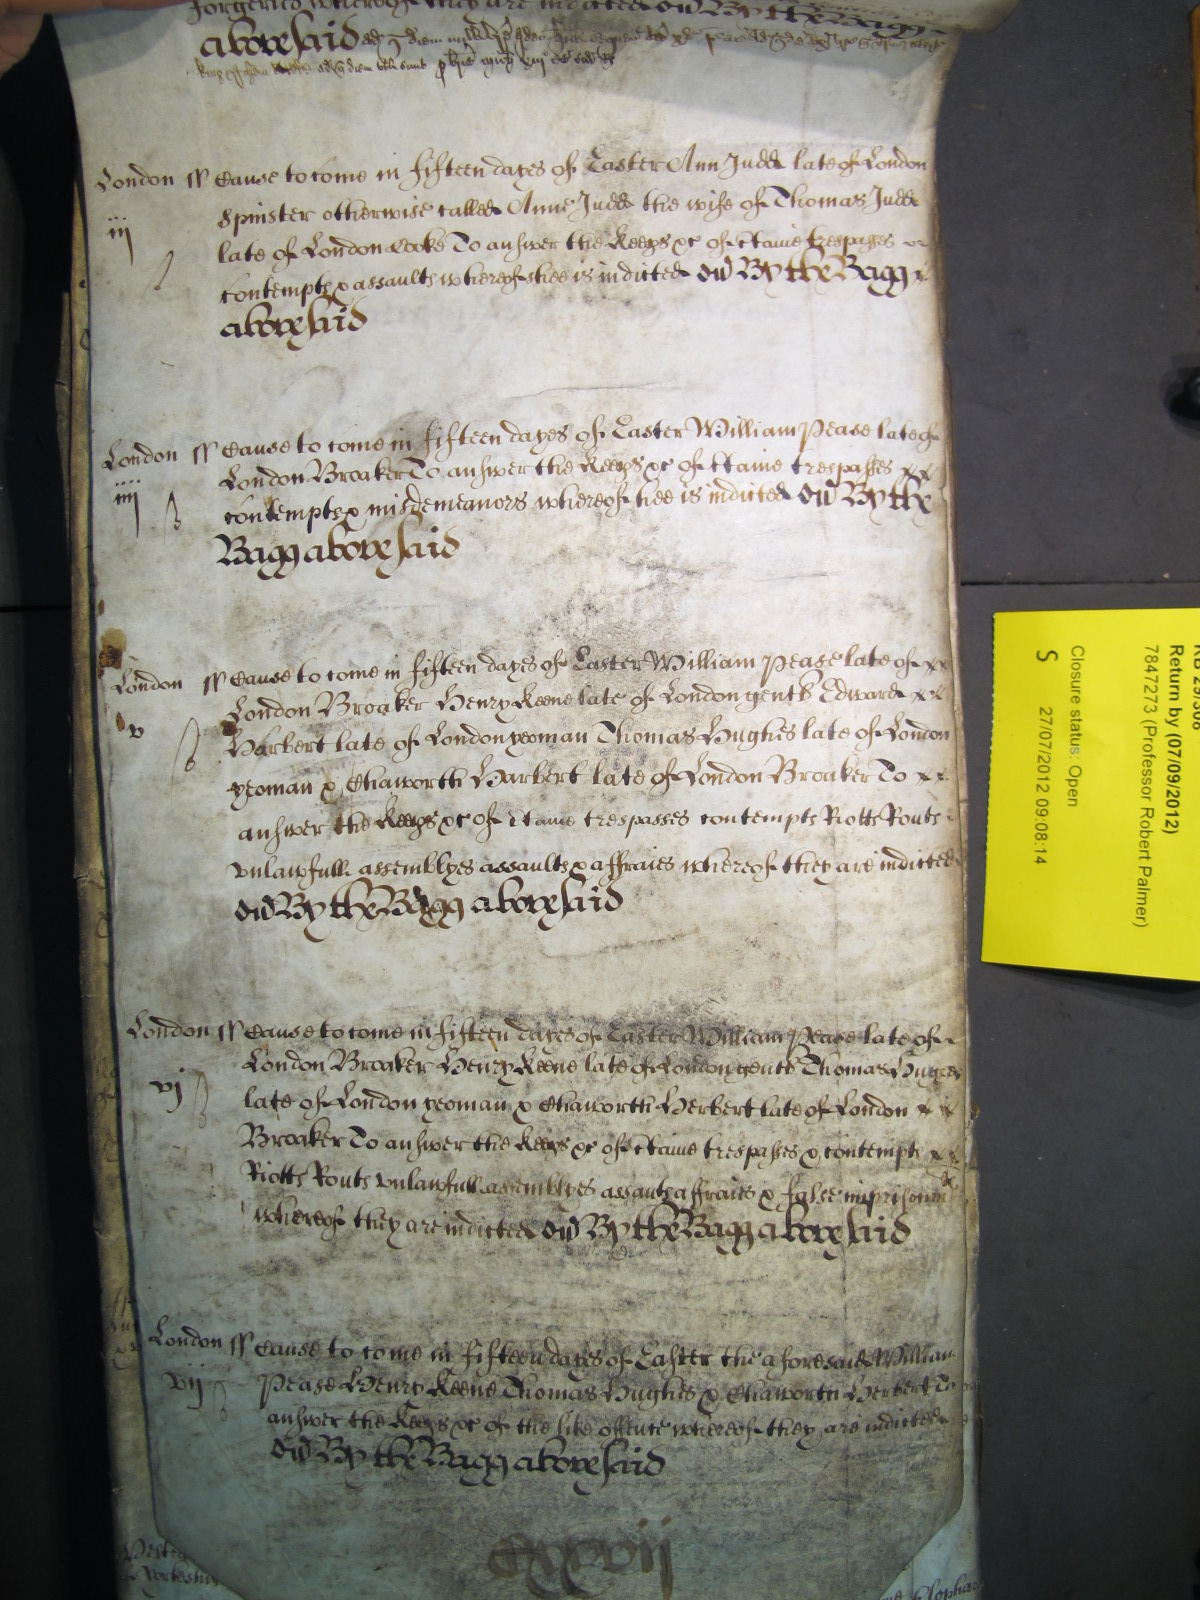 forgeries whereof they are indicted owd By the Bagg
abovesaid
London ss Cause to come in fifteen dayes of Easter Ann Judd late of London
iij
Spinster otherwise called Anne Judd the wife of Thomas Judd
late of London Cooke To answer the Keeps &c of ctaine trespasses
contempts & assaults whereof shee is indicted owd By the Bagg
abovesaid
London ss Cause to come in fifteen dayes of Easter William Pease late of
iiij
London Broaker To answer the Keeps &c of ctaine trespasses
contempts & misdemeanors whereof hee is indicted owd By the
Bagg abovesaid
London ss Cause to come in fifteen dayes of Easter William Pease late of
v
London Broaker Henry Keene late of London gent Edward
Harbert late of London yeoman Thomas Hughes late of London
yeoman & Chaworth Harbert late of London Broaker To
answer the Keeps &c of ctaine trespasses contempts Riotts Routs
unlawfull assemblyes assaults & affraies whereof they are indicted
owd By the Bagg abovesaid
London ss Cause to come in fifteen dayes of Easter William Pease late of
vj
London Broaker Henry Keene late of London gent Thomas Hughes
late of London yeoman & Chaworth Herbert late of London
Broaker To answer the Keeps &c of ctaine trespasses & contempts
Riotts Routs unlawfull assemblyes assaults affraies & false imprisonmt
whereof they are indicted owd By the Bagg abovesaid
London ss Cause to come in fifteen dayes of Easter the aforesaid William
vij
Pease Henry Keene Thomas Hughes & Chaworth Herbert To
answer the Keeps &c of the like offence whereof they are indicted
owd By the Bagg abovesaid
cxxvij
Return by (07/09/2012)
7847273 (Professor Robert Palmer)
Closure status: Open
S 27/07/2012 09:08:14